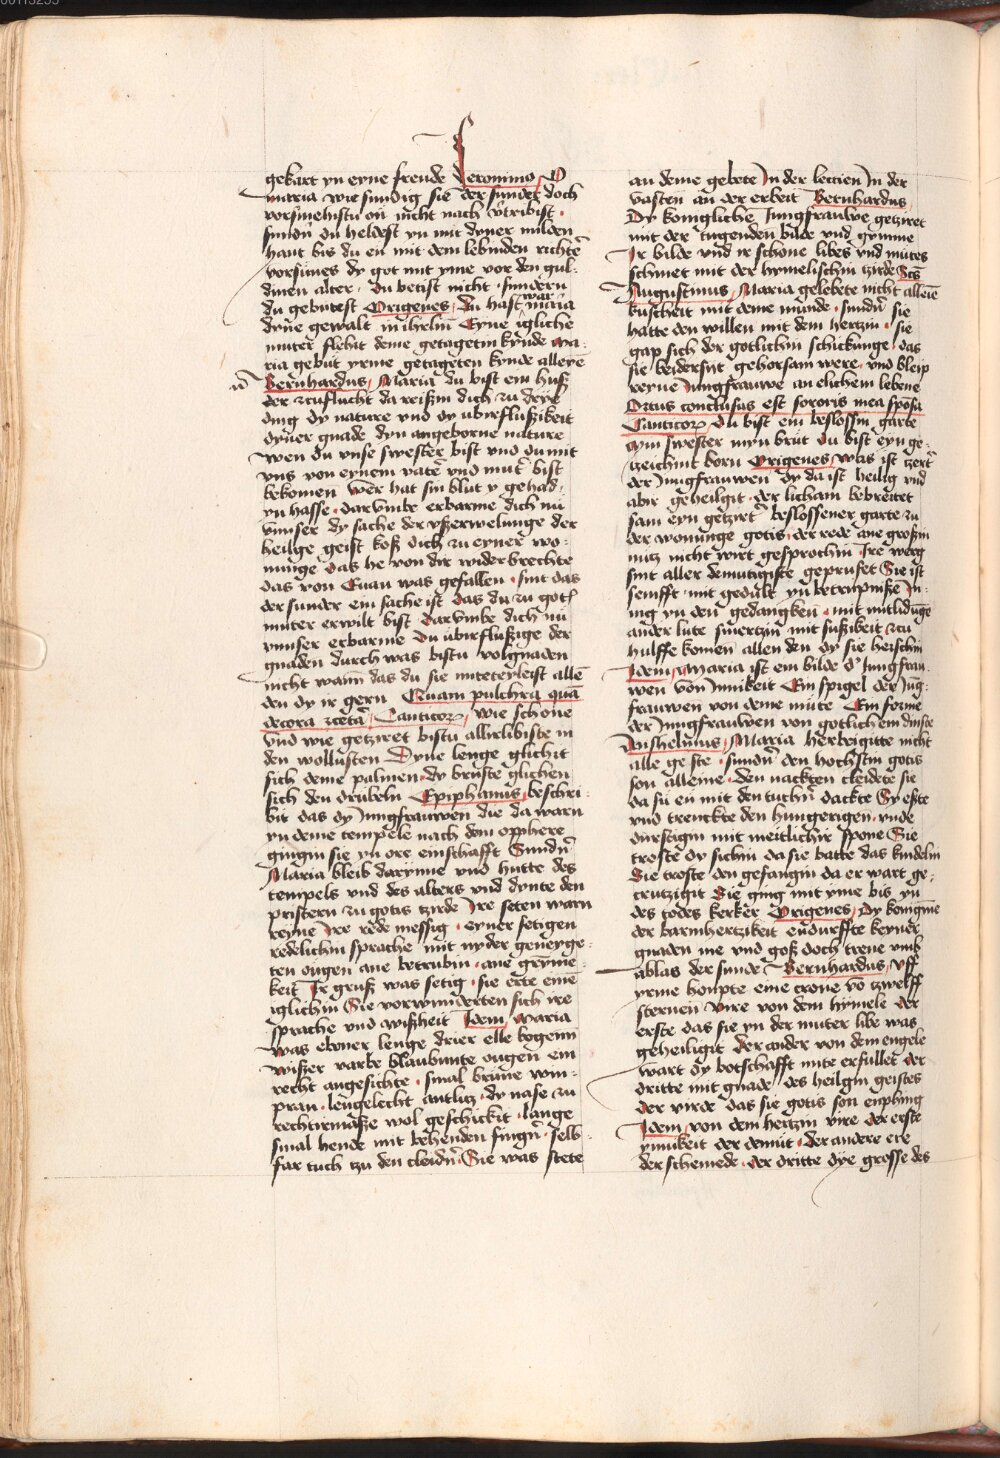 gekart yn eyne freude Jeronimo O
maria wie sundig sie der sunder doch
vorsmehistu en nicht nach vtribist
sundern du heldest yn mit dyner milden
hant bis du en mit dem lebinden richtē
vorsunes dy got mit yme vor den gul-
dinen alter du betist nicht sundern
du gebutest Origenes Du hast war maria
dyne gewalt in ihesu Eyne igliche
muter flehit deme getagetin kynde ma-
ria gebut yrme getageten kynde alleyē
Bernhardus Maria du bist ein huß
der zcuflucht da reißin dich zu drye
ding dy nature vnd dy vbirflußikeit
dyner gnade dyn angeborne nature
wen du vnse swester bist vnd du mit
vns von eynem vatē vnd mut' bist
bekomen wer hat sin blut y gehad
yn hasse darvmbe erbarme dich nu
vnnser dy sache der vßerwelunge der
heilge geist koß dich zu eyner wo-
nunge das he von dir widerbrechte
das von Euan was gefallen sint das
der sunder ein sache ist das du zu gotꝭ
muter erwilt bist darvmbe dich nu
vnnser erbarme Du vbirflußige der
gnaden durch was bistu volgnaden
nicht wann das du sie meteteyleist allē
den dy ir gern Quam pulchra quā
decora zcetā Canticoꝝ wie schone
vnd wie getziret bistu allirlibiste in
den wollusten Dyne lenge glichit
sich deme palmen dy bruste glichen
sich den drubeln Epiphanius beschri-
bit das dy Jungfrauwen die da warn
yn deme tempele nach dem opphere
gingin sie yn ore einschafft Sundn̄
Maria bleib darynne vnd hutte des
tempels vnd des alters vnd dynte den
pristern zu gotis tzirde Ire seten warn
reyne Ire rede messig eyner setigen
redelichin sprache mit nyder geneyge-
ten ougen ane betrubin ane grymme-
keit Ir gruß was setig sie erte eine
iglichin Sie vorwunderten sich ire
sprache vnd wißheit Idem Maria
was ebener lenge drier elle bogenn
wißer varbe blaubunte ougen ein
recht angesichte smal brune win-
pran lengelecht antlitz dy nase zu
rechtirmaße wol geschickit lange
smal hende mit behenden fingn̄ selb-
far tuch tzu den cleidn̄ Sie was stete
an deme gebete In der lectien In der
vasten an der erbeit Bernhardus
Dy konigliche Jungfrauwe getziret
mit der tugenden bilde vnd gymme
Ir bilde vnd ir schone libes vnd mutes
schinet mit der hymelischin tzirde Scs
Augustinus Maria gelebete nicht alleīe
kuscheit mit deme munde sundn̄ sie
hatte den willen mit dem hertzin sie
gap sich der gotlichin schickunge das
sie beidersyt gehorsam were vnd bleip
reyne Jungfrauwe an elichem lebene
Ortus conclusus est sororis mea sponsa
Canticoꝝ Du bist ein beslossin garte
myn swester myn brut du bist eyn ge-
tzeichint born Origenes was ist tzert
der Jungfrauwen dy da ist heilig vnd
abir geheilgit der licham bebreitet
sam eyn getziret beslossener garte zu
der wonunge gotis der rede ane großin
nutz nicht wirt gesprochin Ire werg
sint aller demutigiste geprufet Sie ist
senfft mit gedult yn betrupniße In-
nig yn den gedangken mit mitlidūge
ander lute smertzin mit sußikeit zcu
hulffe komen allen den dy sie heischin
Idem Maria ist ein bilde d' Jungfrau-
wen von Innikeit Ein spigel der Jūg-
frauwen von deme mute Ein forme
der Jungfrauwen von gotlichem dinste
Anshelmus Maria herbrigitte nicht
alle geste sundn̄ den hochstin gotis
son alleine den nackten cleidete sie
da sü en mit den tuchn̄ dackte Sy este
vnd trenckte den hungerigen vnde
durestigin mit meitlichir spone Sie
troste dy sichin da sie batte das kindelin
Sie troste den gefangin da er wart ge-
crutzigit Sie ging mit yme bis yn
des todes kerker Origenes Dy konigīne
der barmhertzikeit endurffte keyner
gnaden nie vnd goß doch trene vmb
ablas der sunde Bernhardus Vff
yrme houpte eine crone vō tzwelff
sternen Vire von dem hymele der
erste das sie yn der muter libe was
geheiligit der ander von dem engele
wart dy botschafft mite erfullet der
dritte mit gnade des heilgin geistes
der virde das sie gotis son enphing
Idem von dem hertzin vire der erste
ynnikeit der demut der andere ere
der schemede der dritte dye grosse des